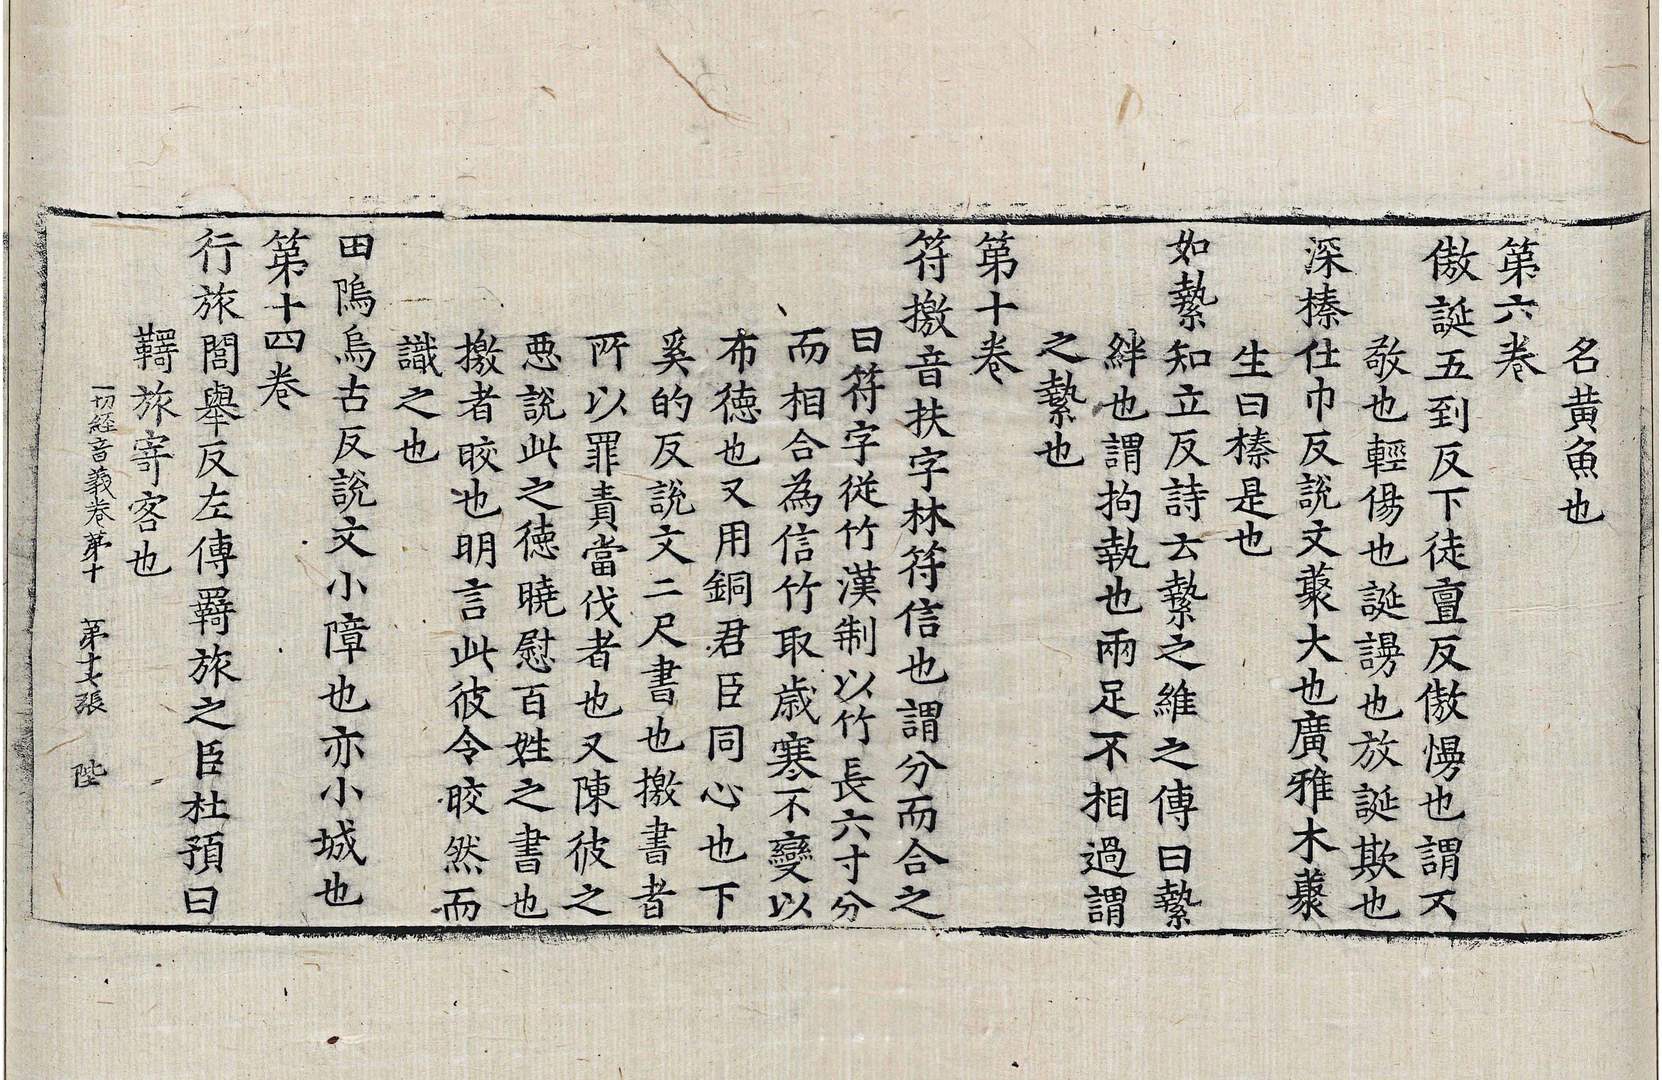 名黄魚也
第六卷
傲誕五到反下徒亶反傲慢也謂不
敬也輕傷也誕謾也放誕欺也
深榛仕巾反說文藂大也廣雅木藂
生曰榛是也
如縶知立反詩云縶之維之傳曰縶
絆也謂拘執也兩足不相過謂
之縶也
第十卷
符檄音扶字林符信也謂分而合之
曰符字從竹漢制以竹長六寸分
而相合為信竹取歲寒不變以
布德也又用銅君臣同心也下
奚的反說文二尺書也檄書者
所以罪責當伐者也又陳彼之
惡說此之德曉慰百姓之書也
檄者皎也明言此彼令皎然而
識之也
田隖烏古反說文小障也亦小城也
第十四卷
行旅閭舉反左傳羇旅之臣杜預曰
羇旅寄客也
一切經音義卷第十 第十七張 陛